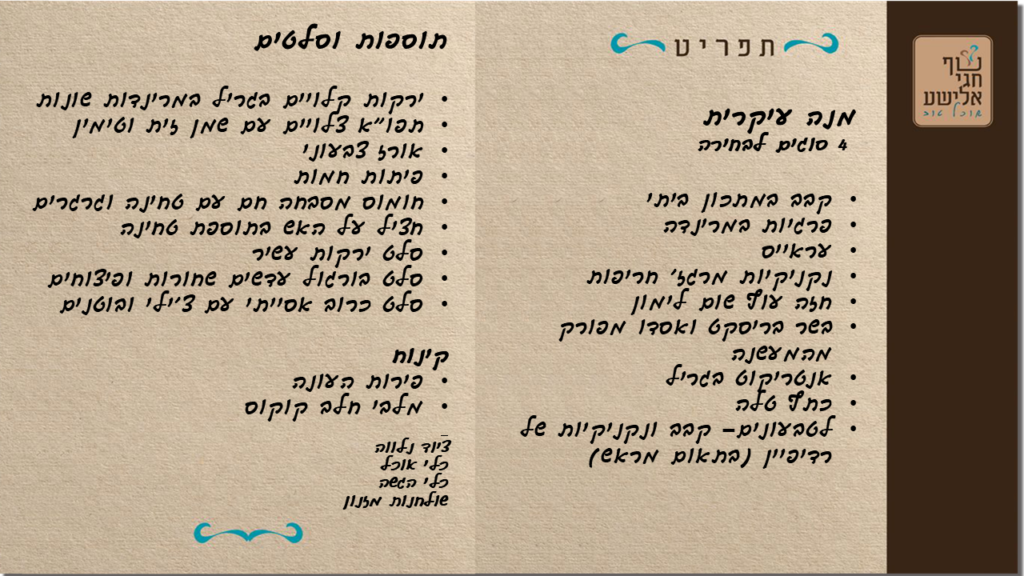 נוף
חגי
אלישע
אוכל טוב
תפריט
מנה עיקרית
4 סוגים לבחירה
• קבב במתכון ביתי
• פרגיות במרינדה
• עראייס
• נקניקיות מרגז' חריפות
• חזה עוף שום לימון
• בשר בריסקט ואסדו מפורק
מהמעשנה
• אנטריקוט בגריל
• כתף טלה
• לטבעונים– קבב ונקניקיות של
רדיפיין (בתאום מראש)
תוספות וסלטים
• ירקות קלויים בגריל במרינדות שונות
• תפו"א צלויים עם שמן זית וטימין
• אורז צבעוני
• פיתות חמות
• חומוס מסבחה חם עם טחינה וגרגרים
• חציל על האש בתוספת טחינה
• סלט ירקות עשיר
• סלט בורגול עדשים שחורות ופיצוחים
• סלט כרוב אסייתי עם צ'ילי ובוטנים
קינוח
• פירות העונה
• מלבי חלב קוקוס
ציוד נלווה
כלי אוכל
כלי הגשה
שולחנות מזנון